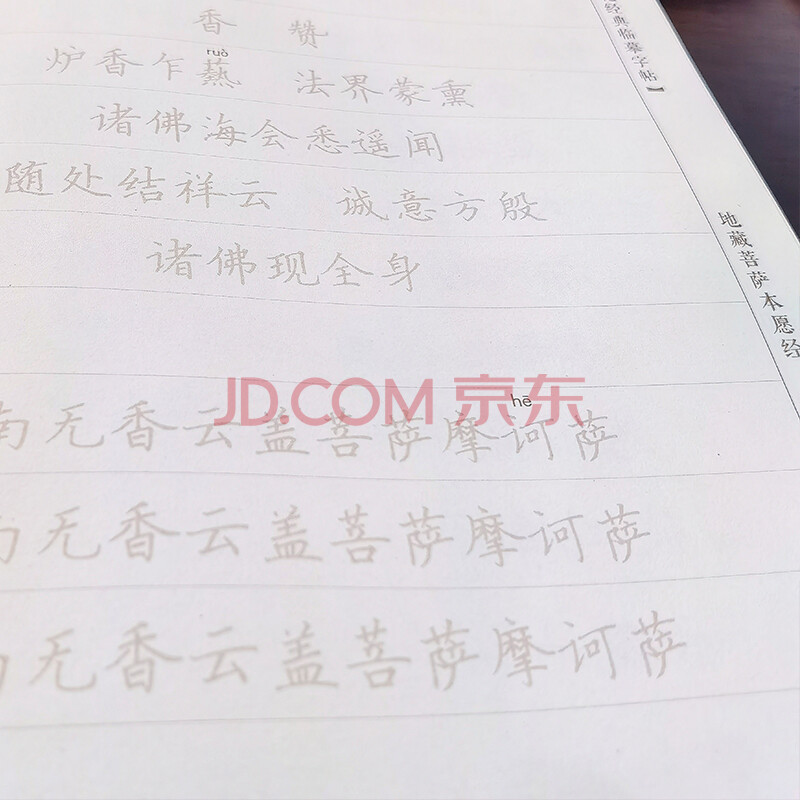 香 赞
ruò
炉香乍爇 法界蒙熏
诸佛海会悉遥闻
随处结祥云 诚意方殷
诸佛现全身
hē
南无香云盖菩萨摩诃萨
南无香云盖菩萨摩诃萨
南无香云盖菩萨摩诃萨
经典临摹字帖】
地藏菩萨本愿经
JD.COM 京东